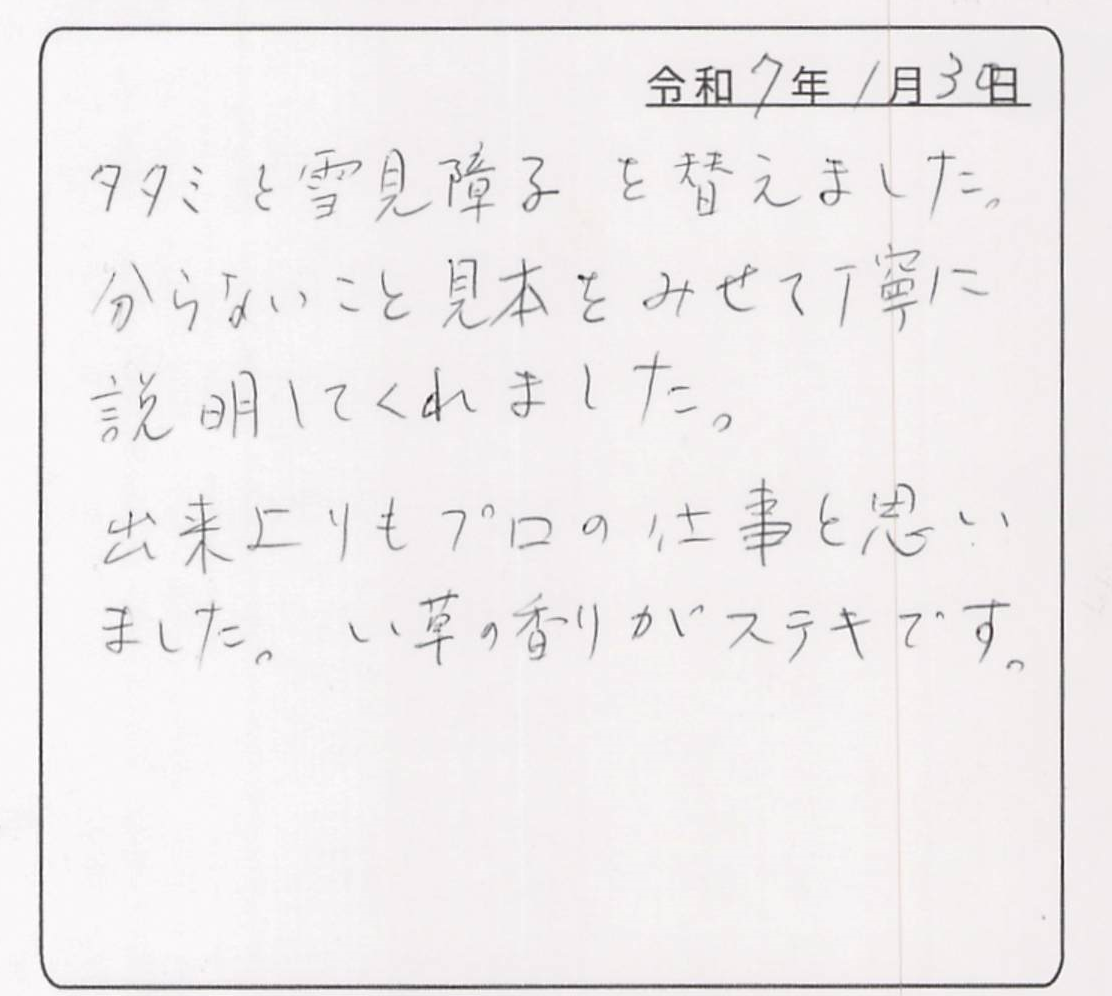 令和7年1月30日
タタミと雪見障子を替えました。
分らないこと見本をみせて丁寧に
説明してくれました。
出来上りもプロの仕事と思い
ました。い草の香りがステキです。